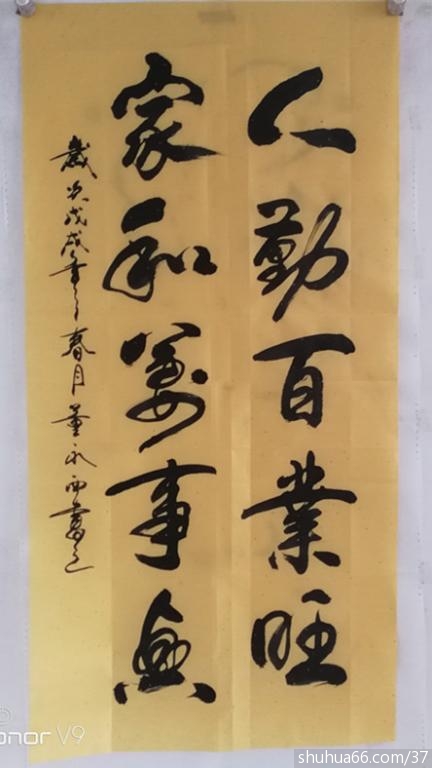 人勤百業旺
家和萬事興
歲次戊戌年之春月董永西書之
onor V9
shuhua66.com/37